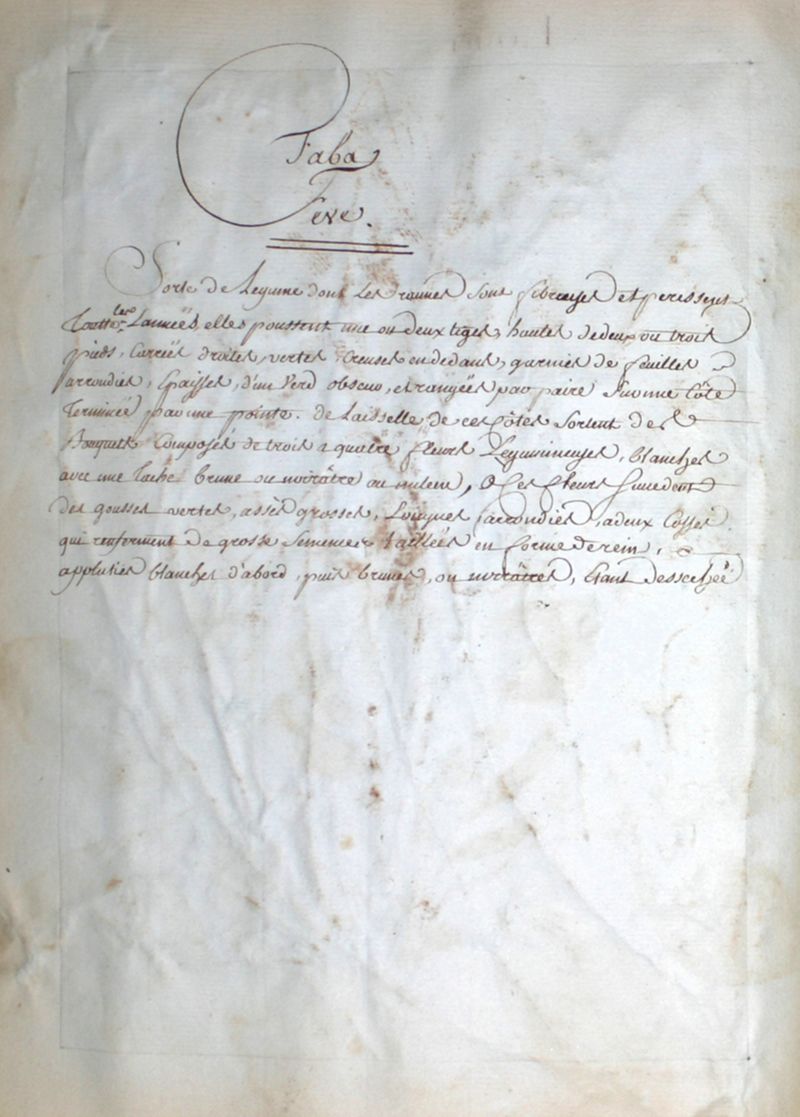 Faba
Feve.
Sorte de Legume dont Les racines sont fibreuses et perissent
Toutte les Lanneës, elles poussent une ou deux tiges, hautes de deux ou trois
pieds, Carreës droites vertes Creuses en dedans, garnies de feuilles
arrondies, Epaisses, d'un Verd obscur, et rangeës par paire sur une Côte
Terminéé par une pointe. de Laisselle, de ces Côtés Sortent des
Bouquets Composés de trois a quatre fleurs Legumineuses, blanches
avec une Tache brune ou noirâtre au milieu, a Ces fleurs Succedent
des gousses vertes, assès grosses, Longues, arrondies, a deux Cosses
qui renferment de grosse Semences taillées en forme de rein,
applaties blanches d'abord, puis brunes, ou noirâtres, Etant dessechéé